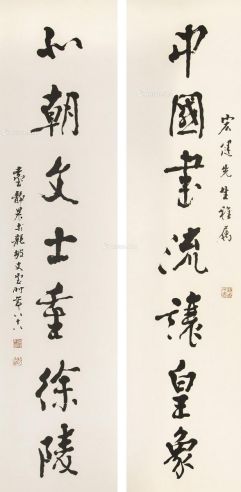 中國書流讓皇象
宏健先生雅屬
北朝文士重徐陵
臺靜農於龍坡丈室時年八十八